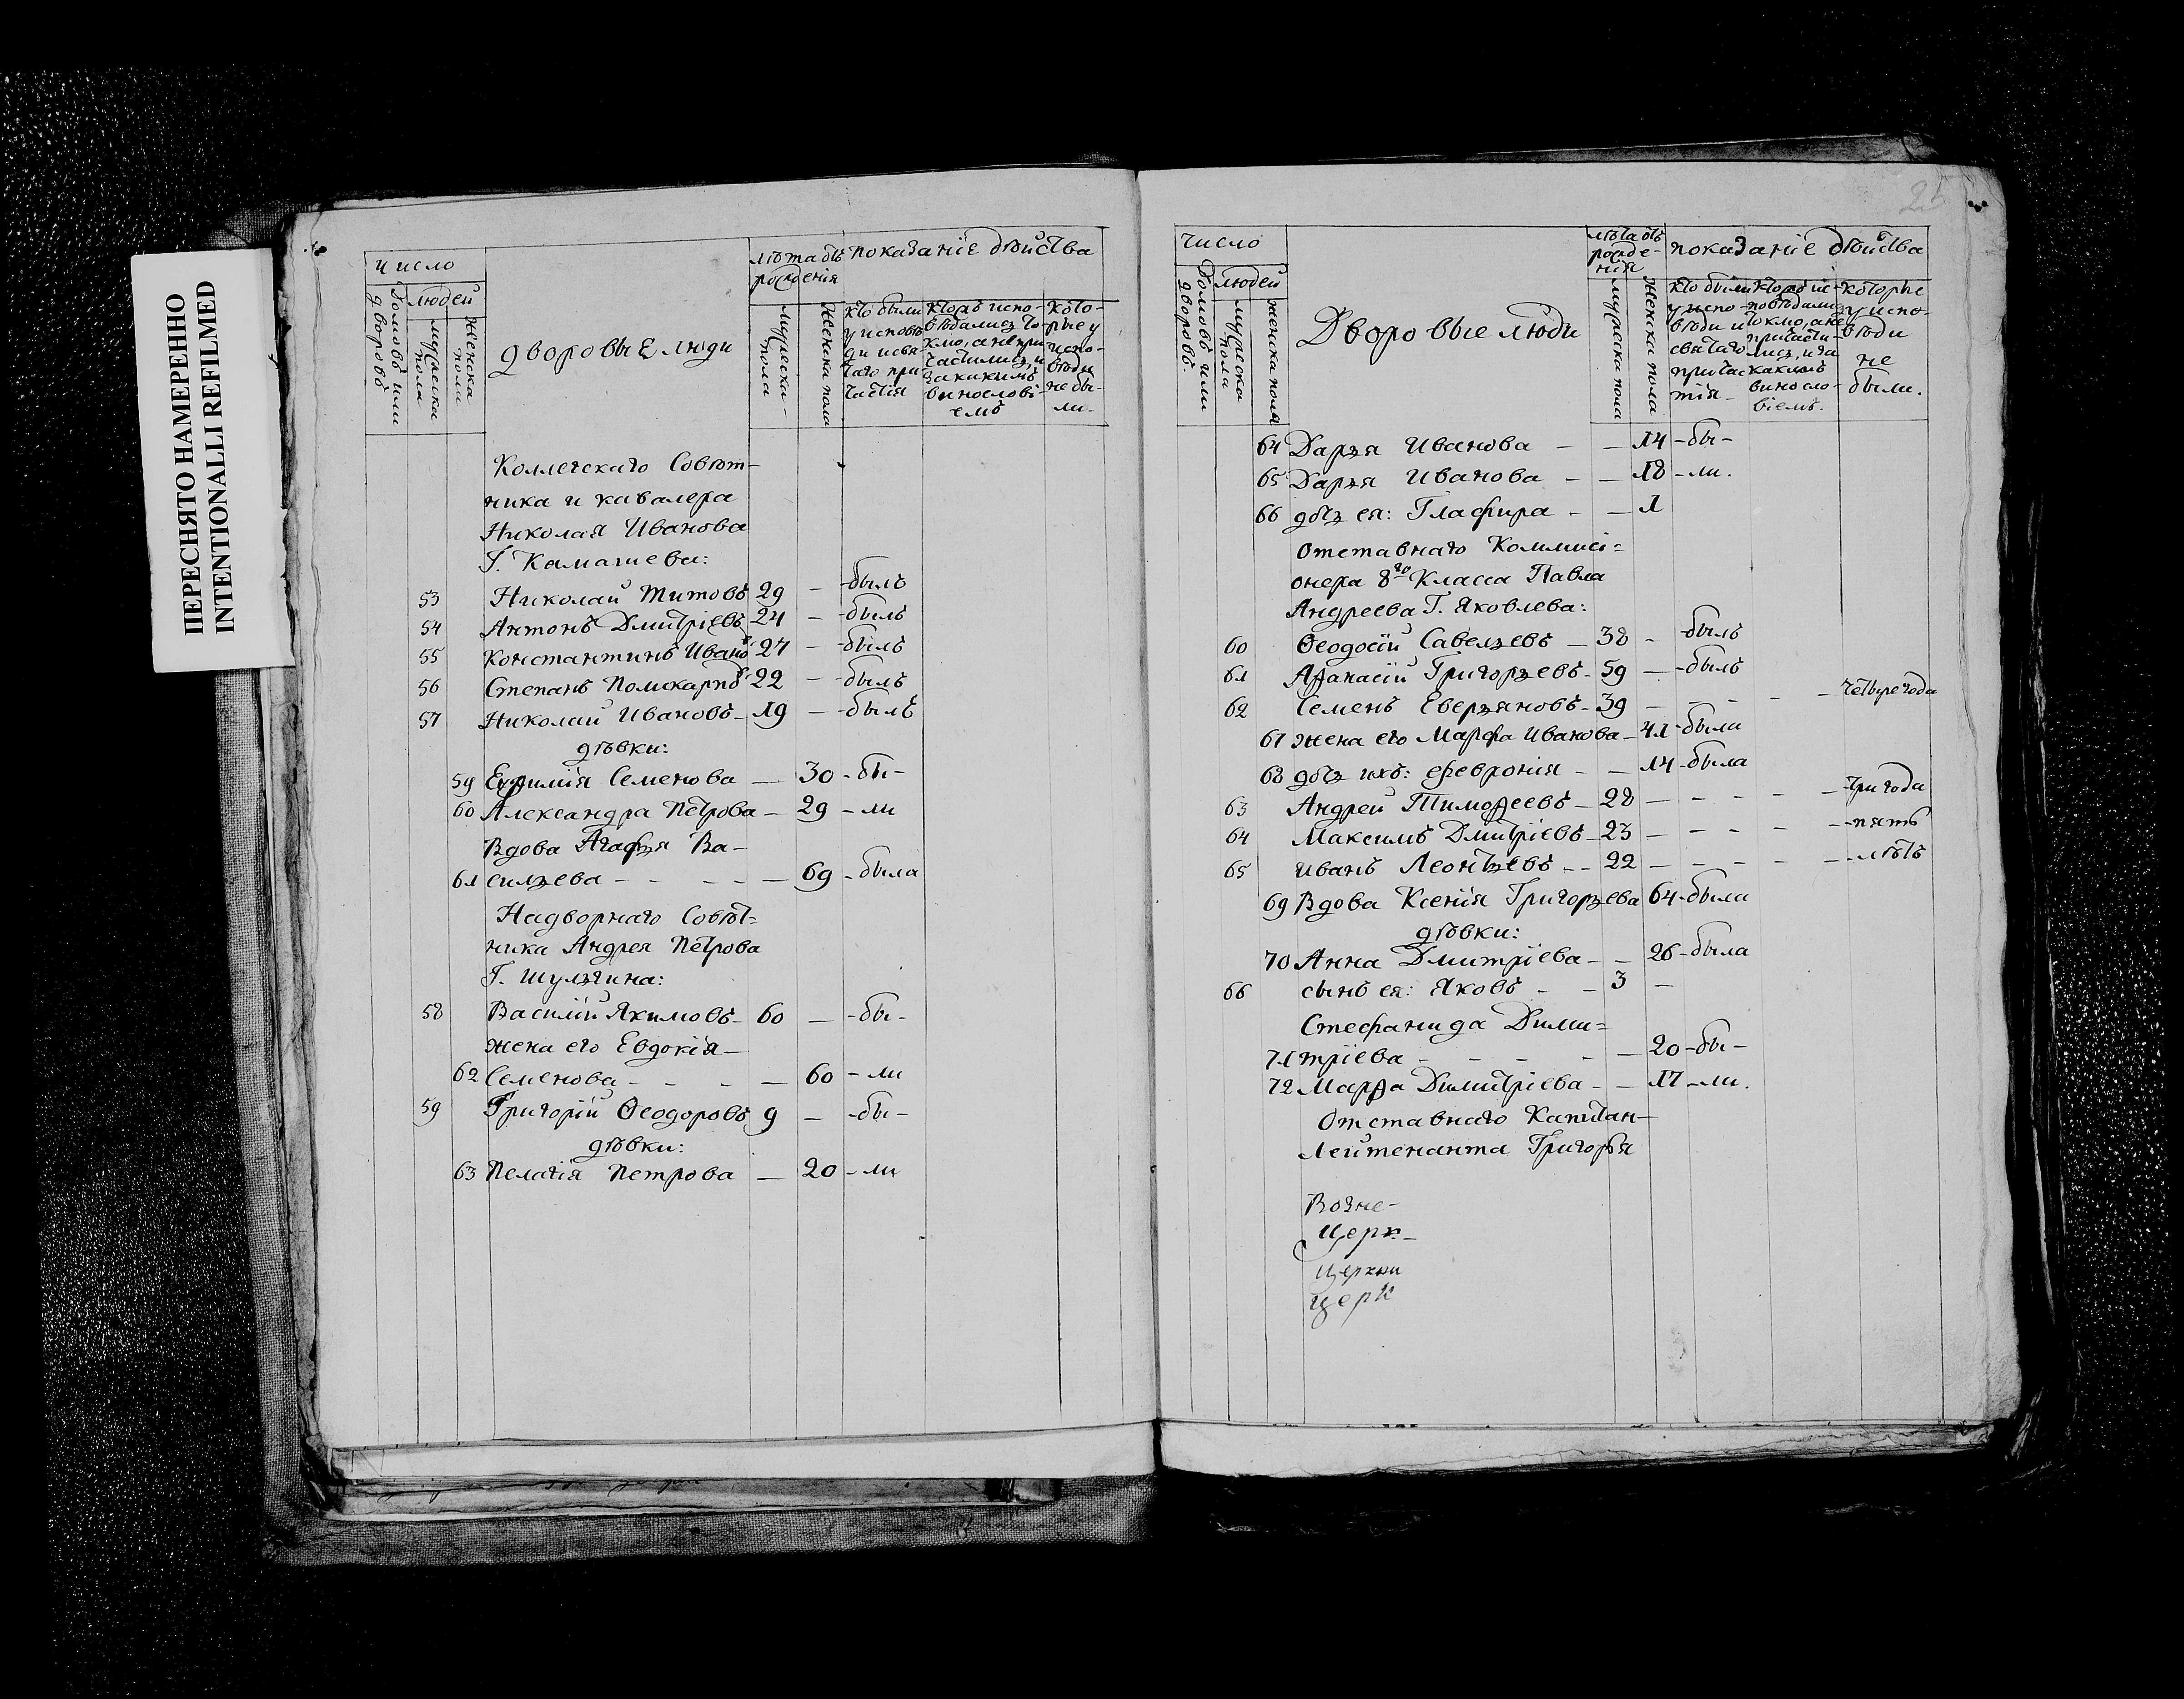 ПЕРЕСНЯТО НАМЕРЕННО
INTENTIONALLI REFILMED
число
людей
домовъ или дворовъ
мужеска пола
женска пола
дворовые люди
лѣта отъ рожденія
мужеска пола
женска пола
показаніе дѣйства
кто были у исповѣди и свя-таго при-частія
кторъ испо-вѣдались то-кмо, а не при-частились, и за какимъ винословi-емъ
кото-рые у испо-вѣди не бы-ли.
Коллегскаго Совѣт-
ника и кавалера
Николая Иванова
Г. Камашева:
53 Николай Титовъ 29 — -былъ
54 Антонъ Дмитріевъ 24 — -былъ
55 Константинъ Ивановъ 27 — -былъ
56 Степанъ Поликарповъ 22 — -былъ
57 Николай Ивановъ- 19 — -былъ
дѣвки:
59 Евфимія Семенова — 30 - бы-
60 Александра Петрова — 29 - ли
Вдова Агафья Ва-
61 сильева - - - - — 69 - была
Надворнаго Совѣт=
ника Андрея Петрова
Г. Шульгина:
58 Василій Якимовъ- 60 — -бы-
жена его Евдокія—
62 Семенова - - - — 60 - ли
59 Григорій Ѳеодоровъ 9 — -бы-
дѣвки:
63 Пелагія Петрова — 20 - ли
25
число
людей
домовъ или дворовъ.
мужеска пола
женска пола
Дворовые люди
лѣта отъ рожде-нія
мужеска пола
женска пола
показаніе дѣйства
кто были у испо-вѣди и святаго причас-тія-
кторъ ис-повѣдались токмо, а не причасти-лись, и за какимъ винсло-віемъ.
которые у испо-вѣди не были.
64 Дарья Иванова - — 14 -бы-
65 Дарья Иванова - — 18 -ли.
66 дочь ея: Глафира - — 1
Отставнаго Коммисі=
онера 8го Класса Павла
Андреева Г. Яковлева:
60 Ѳеодосій Савельевъ — 38 - -былъ
61 Аѳанасій Григорьевъ- 59 — -былъ
62 Семенъ Еверьяновъ- 39 — - - - — четыре года
67 жена его Марфа Иванова- 41 -была
68 дочь ихъ: Февронія - — 14 -была
63 Андрей Тимоѳеевъ- 28 — - - - — три года
64 Максимъ Дмитріевъ- 23 — - - - — пять
65 Иванъ Леонтьевъ -- 22 — - - - — лѣтъ
69 Вдова Ксенія Григорьева 64 -была
дѣвки:
70 Анна Дмитріева- — 26 -была
66 сынъ ея: Яковъ - - 3 —
Стефанида Дими=
71 тріева - - - - — 20 -бы-
72 Марѳа Димитріева- — 17 -ли.
Отставнаго Капитан—
Лейтенанта Григорья
Возне-
Церк-
Церкви
церк